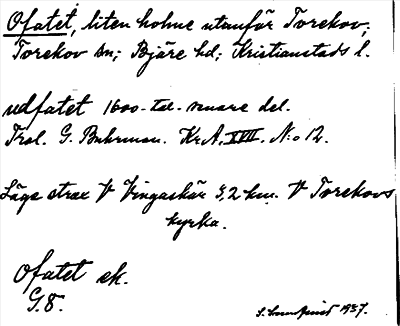 Ofatet, liten holme utanför Torekov;
Torekov sn; Bjäre hd; Kristianstads l.
udfatet 1600-tal. senare del.
Trol. G. Buhrman. Kr.A. XVII. N:o 12.
Läge strax V Vingaskär 3,2 km. V Torekovs
kyrka.
Ofatet ek.
G.8.
1937.